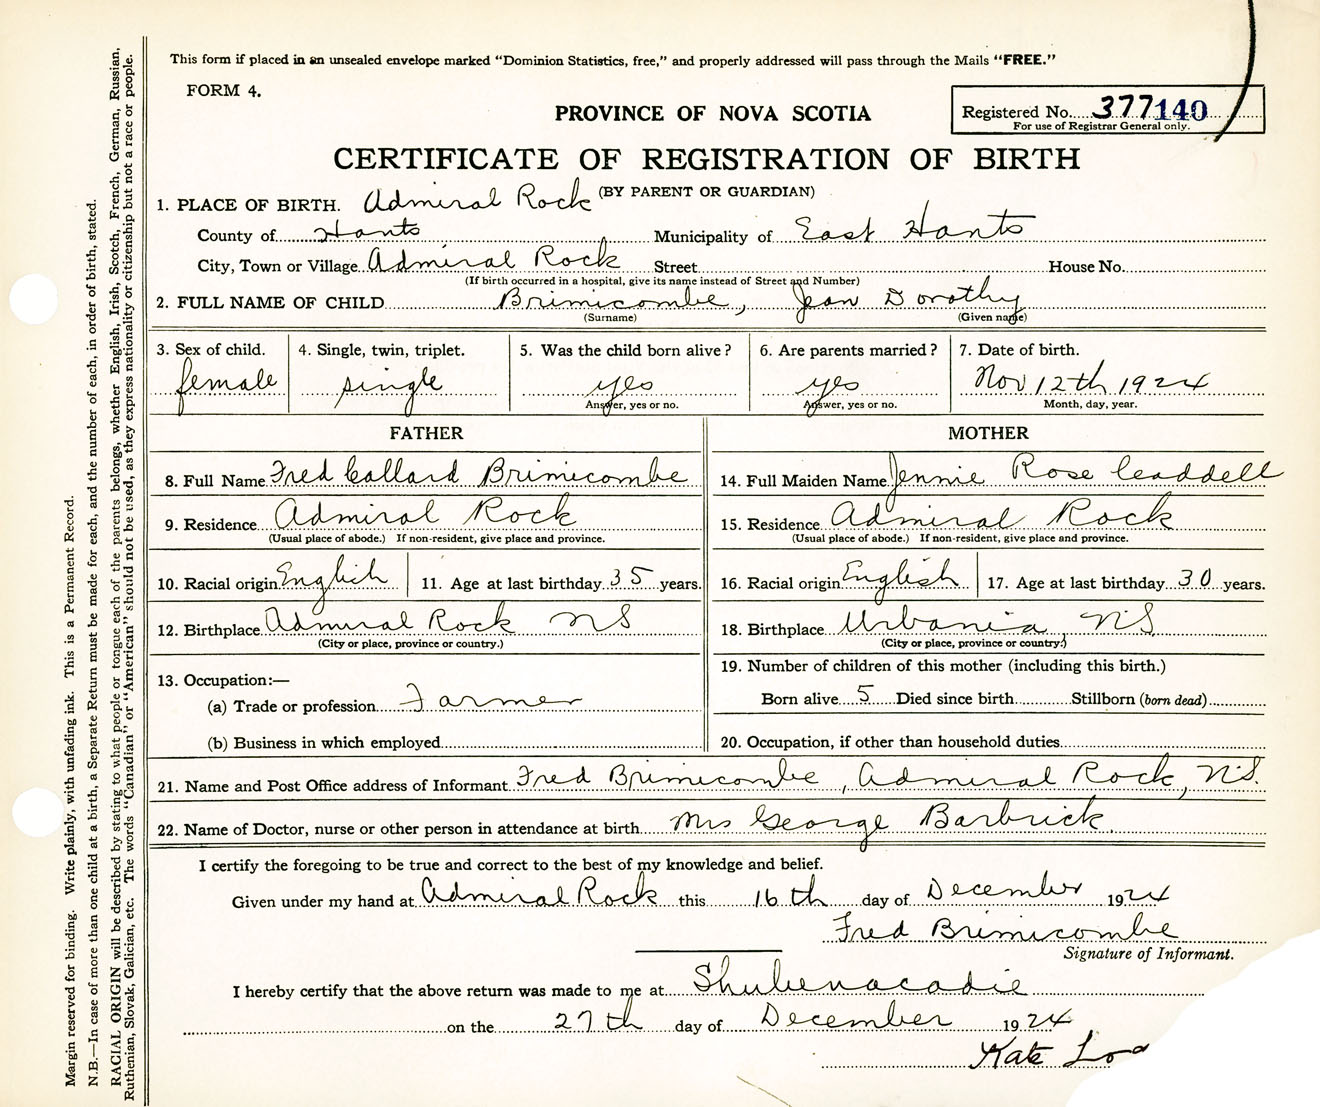 This form if placed in an unsealed envelope marked "Dominion Statistics, free," and properly addressed will pass through the Mails "FREE."
FORM 4.
PROVINCE OF NOVA SCOTIA
Registered No. 377140
For use of Registrar General only.
CERTIFICATE OF REGISTRATION OF BIRTH
(BY PARENT OR GUARDIAN)
1. PLACE OF BIRTH. Admiral Rock
County of Hants Municipality of East Hants
City, Town or Village Admiral Rock Street House No.
(If birth occurred in a hospital, give its name instead of Street and Number)
2. FULL NAME OF CHILD Brimicombe, Jean Dorothy
(Surname) (Given name)
3. Sex of child. 4. Single, twin, triplet. 5. Was the child born alive? 6. Are parents married? 7. Date of birth.
female single yes yes Nov 12th 1924
Answer, yes or no. Answer, yes or no. Month, day, year.
FATHER
8. Full Name Fred Collard Brimicombe
9. Residence Admiral Rock
(Usual place of abode.) If non-resident, give place and province.
10. Racial origin English 11. Age at last birthday 35 years.
12. Birthplace Admiral Rock NS
(City or place, province or country.)
13. Occupation:—
(a) Trade or profession Farmer
(b) Business in which employed
MOTHER
14. Full Maiden Name Jennie Rose Caddell
15. Residence Admiral Rock
(Usual place of abode.) If non-resident, give place and province.
16. Racial origin English 17. Age at last birthday 30 years.
18. Birthplace Urbania N.S.
(City or place, province or country.)
19. Number of children of this mother (including this birth.)
Born alive 5 Died since birth Stillborn (born dead)
20. Occupation, if other than household duties
21. Name and Post Office address of Informant Fred Brimicombe, Admiral Rock, N.S.
22. Name of Doctor, nurse or other person in attendance at birth Mrs George Barbrick.
I certify the foregoing to be true and correct to the best of my knowledge and belief.
Given under my hand at Admiral Rock this 16th day of December 1924
Fred Brimicombe
Signature of Informant.
I hereby certify that the above return was made to me at Shubenacadie
on the 27th day of December 1924
Kate
Margin reserved for binding. Write plainly, with unfading ink. This is a Permanent Record.
N.B.—In case of more than one child at a birth, a Separate Return must be made for each, and the number of each, in order of birth, stated.
RACIAL ORIGIN will be described by stating to what people or tongue each of the parents belongs, whether English, Irish, Scotch, French, German, Russian,
Ruthenian, Slovak, Galician, etc. The words "Canadian" or "American" should not be used, as they express nationality or citizenship but not a race or people.